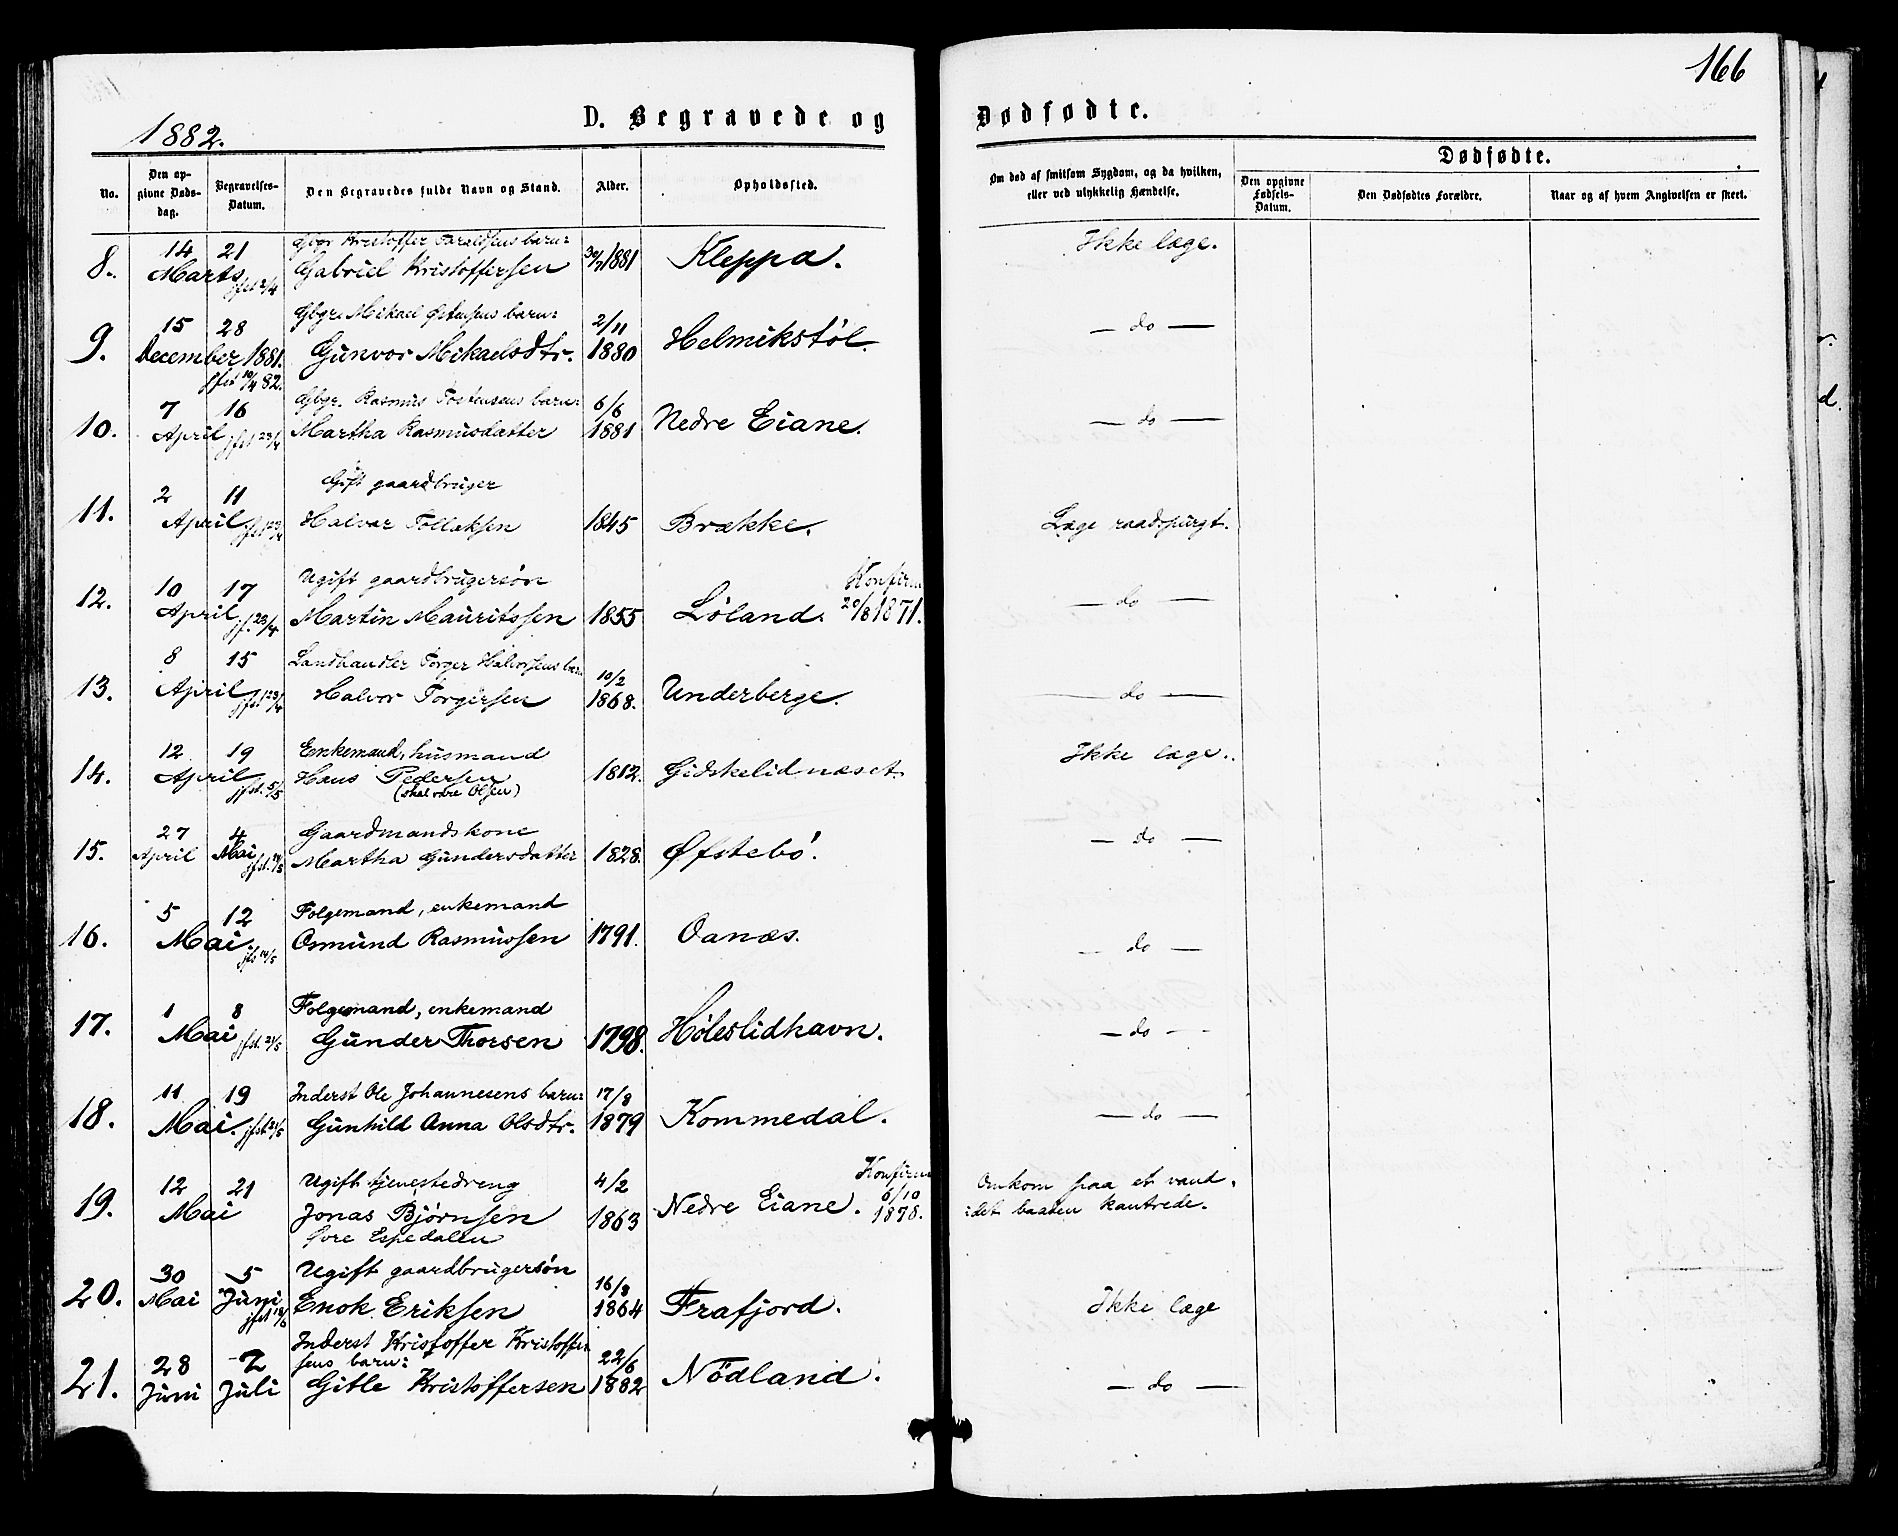 166
1882.
D. Begravede og Dødfødte.
No.
Den opgivne Døds-dag.
Begravelses-Datum.
Den Begravedes fulde Navn og Stand.
Alder.
Opholdssted.
Om død af smitsom Sygdom, og da hvilken, eller ved ulykkelig Hændelse.
Dødfødte.
Den opgivne Fødsels-Datum.
Den Dødfødtes Forældre.
Naar og af hvem Angivelsen er skeet.
8. 14 21 Gbgr Kristoffer Taraldsens barn:
Marts jfst 2/4 Gabriel Kristoffersen 30/7 1881 Kleppa. Ikke læge.
9. 15 28 Gbgr. Mikael Østensens barn: 2/11
December 1881. Gunvor Mikaelsdtr. 1880 Helmikstøl. — do —
jfst 10/4 82.
10. 7 16 Gbgr. Rasmus Tostensens barn: 6/6
April jfst 23/4 Martha Rasmusdatter 1881 Nedre Eiane. — do —
11. 2 11 Gift gaardbruger
April jfst 23/4 Halvar Tollaksen 1845 Brække. Læge raadspurgt.
12. 10 17 Ugift gaardbrugersøn Konfirm
April jf. 23/4 Martin Mauritssen 1855 Løland. 20/8 1871. — do —
13. 8 15 Landhandler Torger Halvorsens barn 10/2
April jfst 23/4 Halvor Torgersen 1868. Underberge. — do —
14. 12 19 Enkemand, husmand
April jfst. 5/5 Hans Pedersen 1812. Gidskelidnæset. Ikke læge.
(skal være Olsen)
15. 27 4 Gaardmandskone
April Mai jfst. Martha Gundersdatter 1828. Øfstebø. — do —
16. 5 12 Folgemand, enkemand
Mai. jfst 14/5 Osmund Rasmussen 1791. Oanæs. — do —
17. 1 8 Folgemand, enkemand
Mai jfst. 21/5 Gunder Thorsen 1798. Høleslidhavn. — do —
18. 11 19 Inderst Ole Johannesens barn: 17/8
Mai. jfst 21/5 Gunhild Anna Olsdtr. 1879 Kommedal. — do —
19. 12 21 Ugift tjenestedreng 4/2 Konfirm 6/10 Omkom paa et vand,
Mai Jonas Bjørnsen 1863 Nedre Eiane. 1878. idet baaten kantrede.
Øvre Espedalen
20. 30 5 Ugift gaardbrugersøn 16/8
Mai Juni jfst 18/6 Enok Eriksen 1864 Frafjord. Ikke læge
21. 28 7 Inderst Kristoffer Kristoffer
sens barn: 22/6
Juni Juli Gitle Kristoffersen 1882 Nödland. — do —